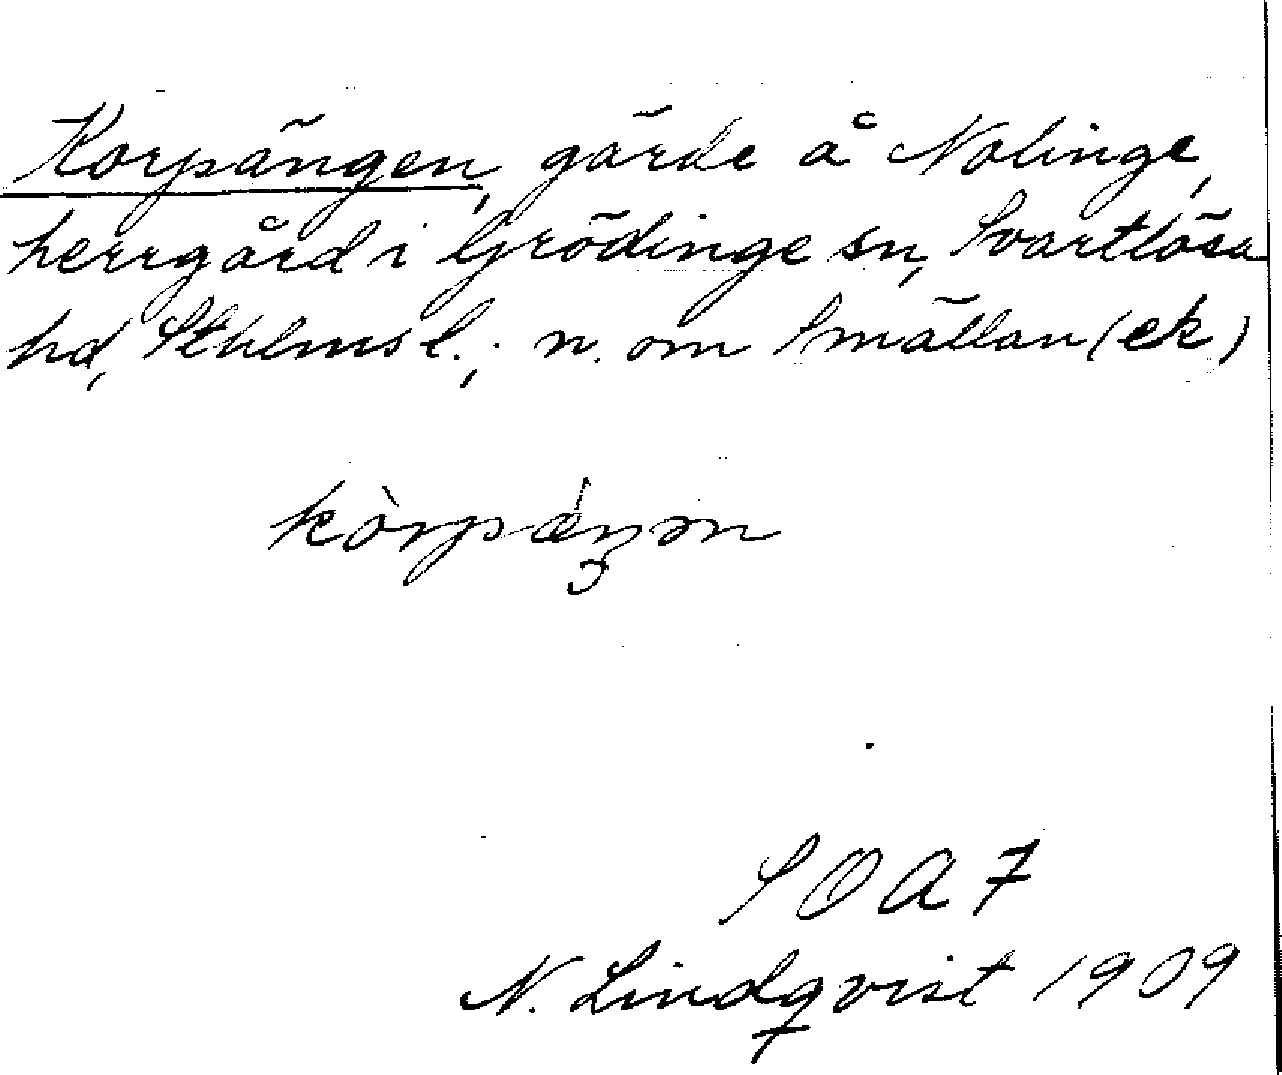 Korpängen, gärde å Nolinge,
herrgård i Grödinge sn, Svartlösa
hd, Sthlms l.; n. om Smällan (ek)
kòrpæ̀ŋən
SOA 7
N. Lindqvist 1909